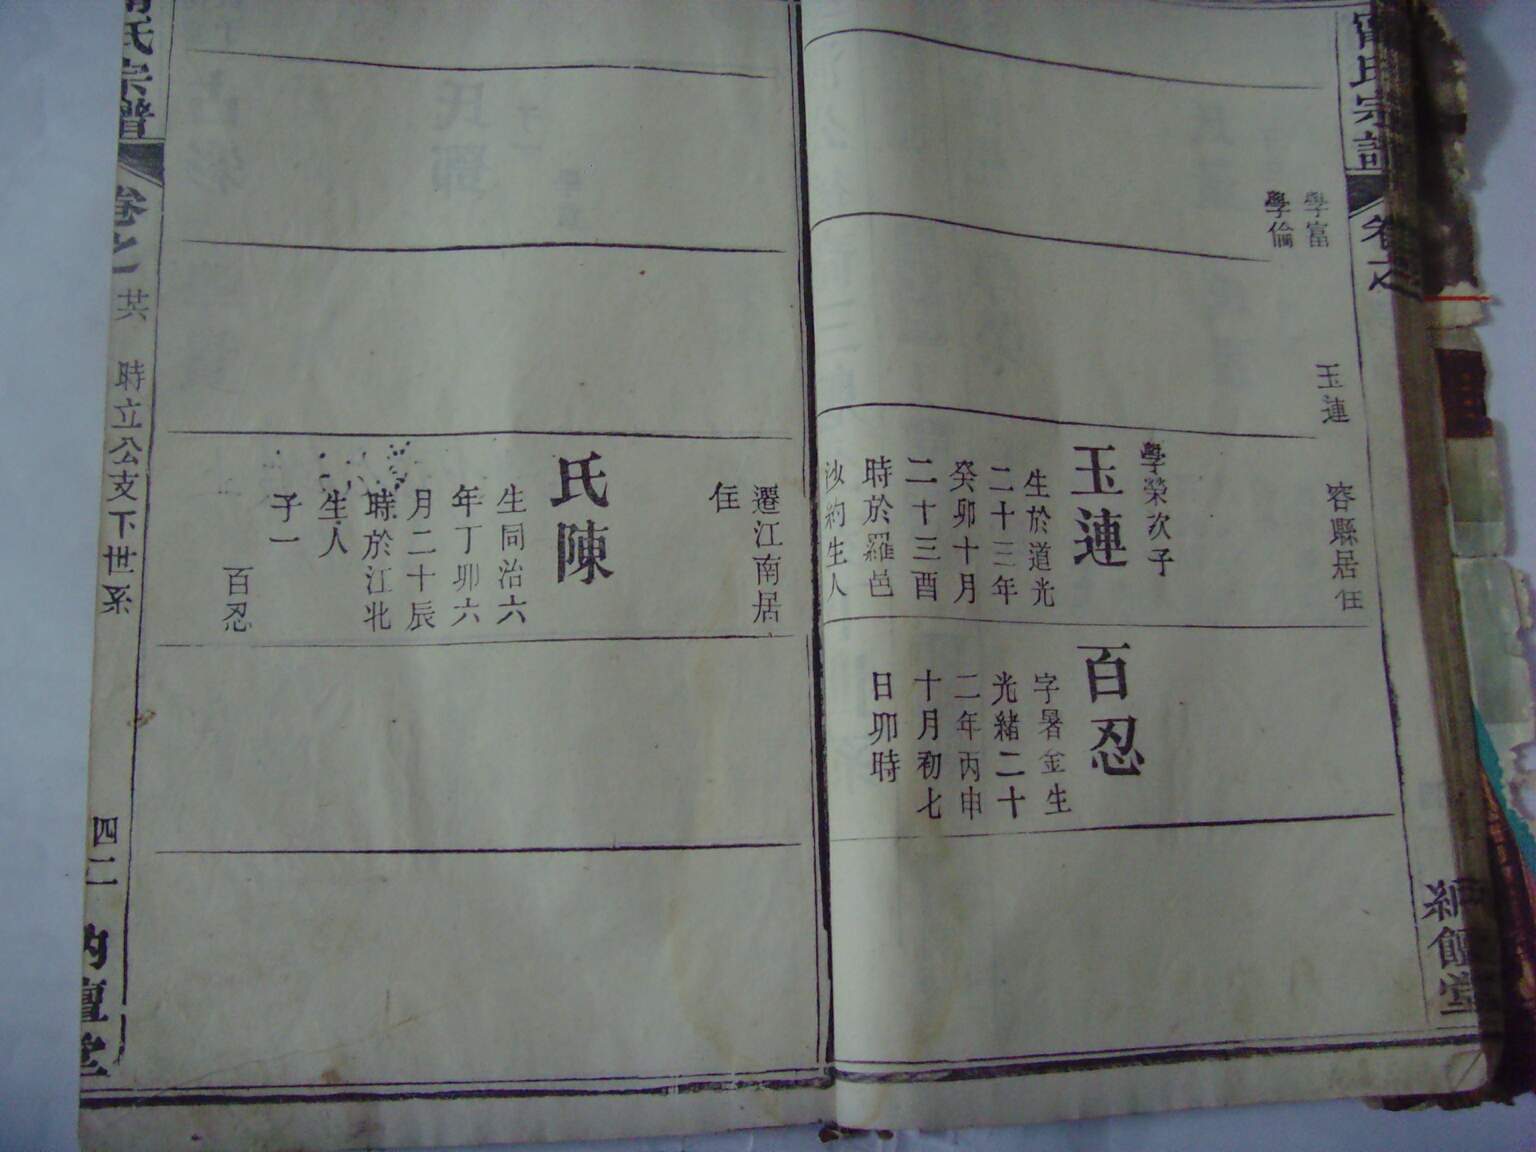 氏宗譜
卷之
堂
學富
學倫
玉連
容縣居住
學榮次子
玉連
生於道光
二十三年
癸卯十月
二十三酉
時於羅邑
沙約生人
百忍
字暑金生
光緒二十
二年丙申
十月初七
日卯時
遷江南居
住
氏陳
生同治六
年丁卯六
月二十辰
時於江北
生人
子一
百忍
氏宗譜
卷之一
時立公支下世系
四二
堂